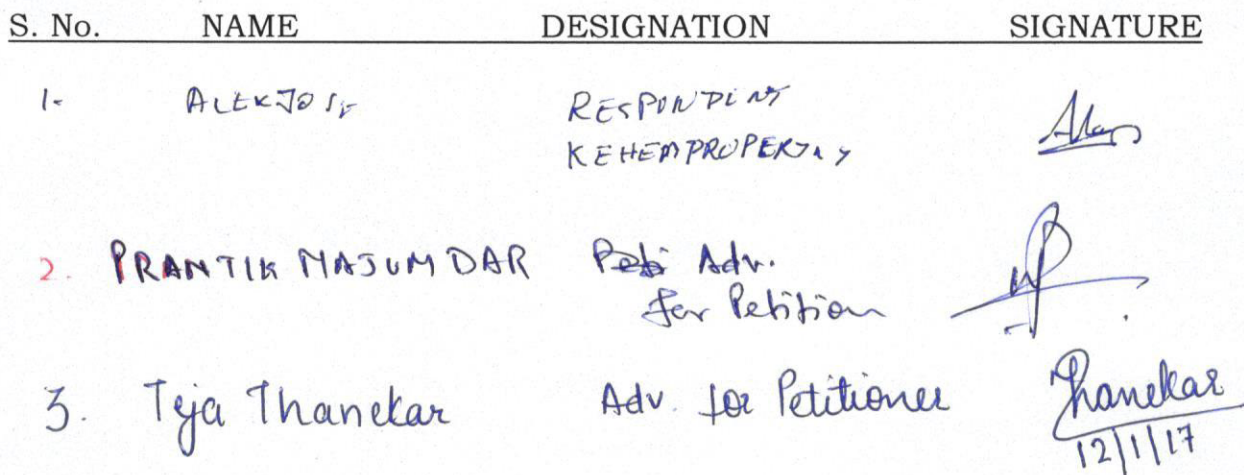 S. No. NAME DESIGNATION SIGNATURE
1- ALEK JOSE RESPONDENT
KEHEM PROPERTY
2. PRANTIK MAJUMDAR Peti Adv.
for Petition
3. Teja Thanekar Adv. for Petitioner Thanekar
12/1/17